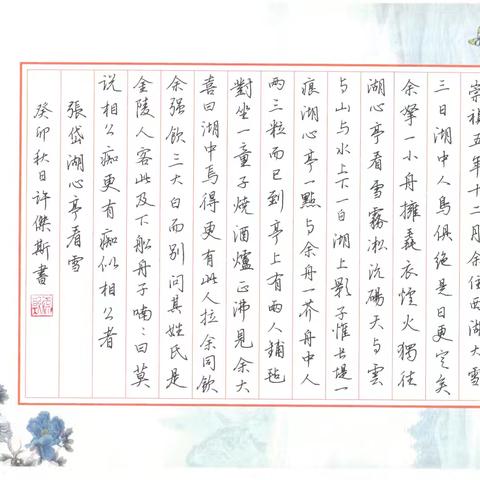 崇禎五年十二月余住西湖大雪
三日湖中人鳥俱絕是日更定矣
余拏一小舟擁毳衣爐火獨往
湖心亭看雪霧淞沆碭天与雲
与山与水上下一白湖上影子惟长堤一
痕湖心亭一點与余舟一芥舟中人
兩三粒而已到亭上有兩人鋪毡
對坐一童子燒酒爐正沸見余大
喜曰湖中焉得更有此人拉余同飲
余强飲三大白而别問其姓氏是
金陵人客此及下船舟子喃:曰莫
说相公痴更有痴似相公者
張岱湖心亭看雪
癸卯秋日许傑斯書